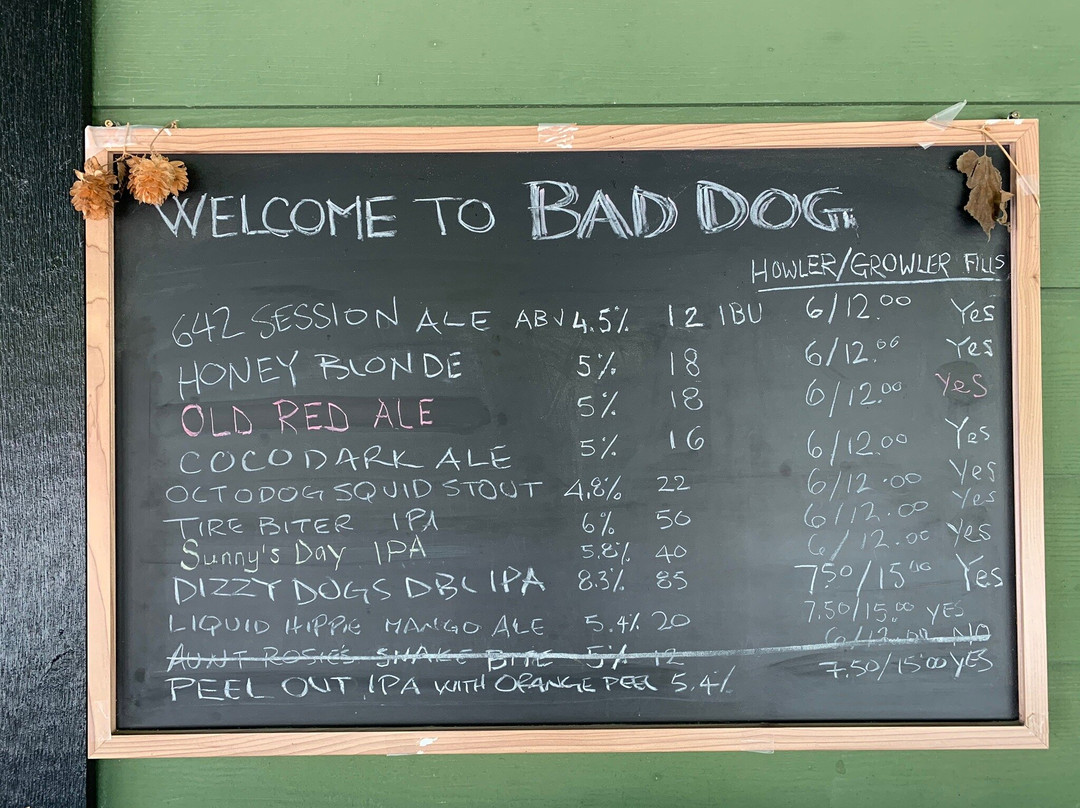 WELCOME TO BAD DOG
HOWLER/GROWLER FILLS
642 SESSION ALE ABV 4.5% 12 IBU 6/12.00 Yes
HONEY BLONDE 5% 18 6/12.00 Yes
OLD RED ALE 5% 18 6/12.00 Yes
COCODARK ALE 5% 16 6/12.00 Yes
OCTODOG SQUID STOUT 4.8% 22 6/12.00 Yes
TIRE BITER IPA 6% 50 6/12.00 Yes
Sunny's Day IPA 5.8% 40 6/12.00 Yes
DIZZY DOGS DBL IPA 8.3% 85 750/15.00 Yes
LIQUID HIPPIE MANGO ALE 5.4% 20 7.50/15.00 YES
AUNT ROSIE'S SNAKE BITE 5% 12 6/12.00 NO
PEEL OUT IPA WITH ORANGE PEEL 5.4% 7.50/15.00 YES